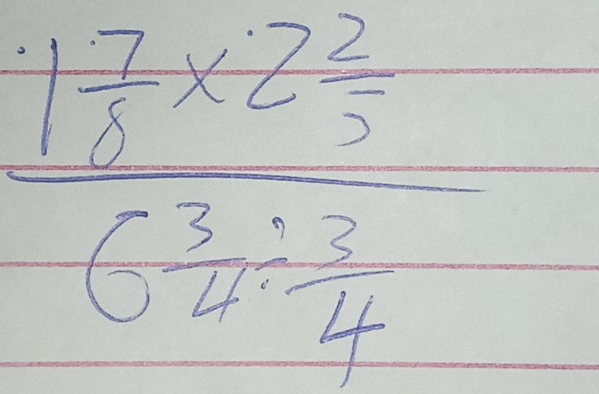 1 7/8 × 2 2/5
6 3/4 ÷ 3/4